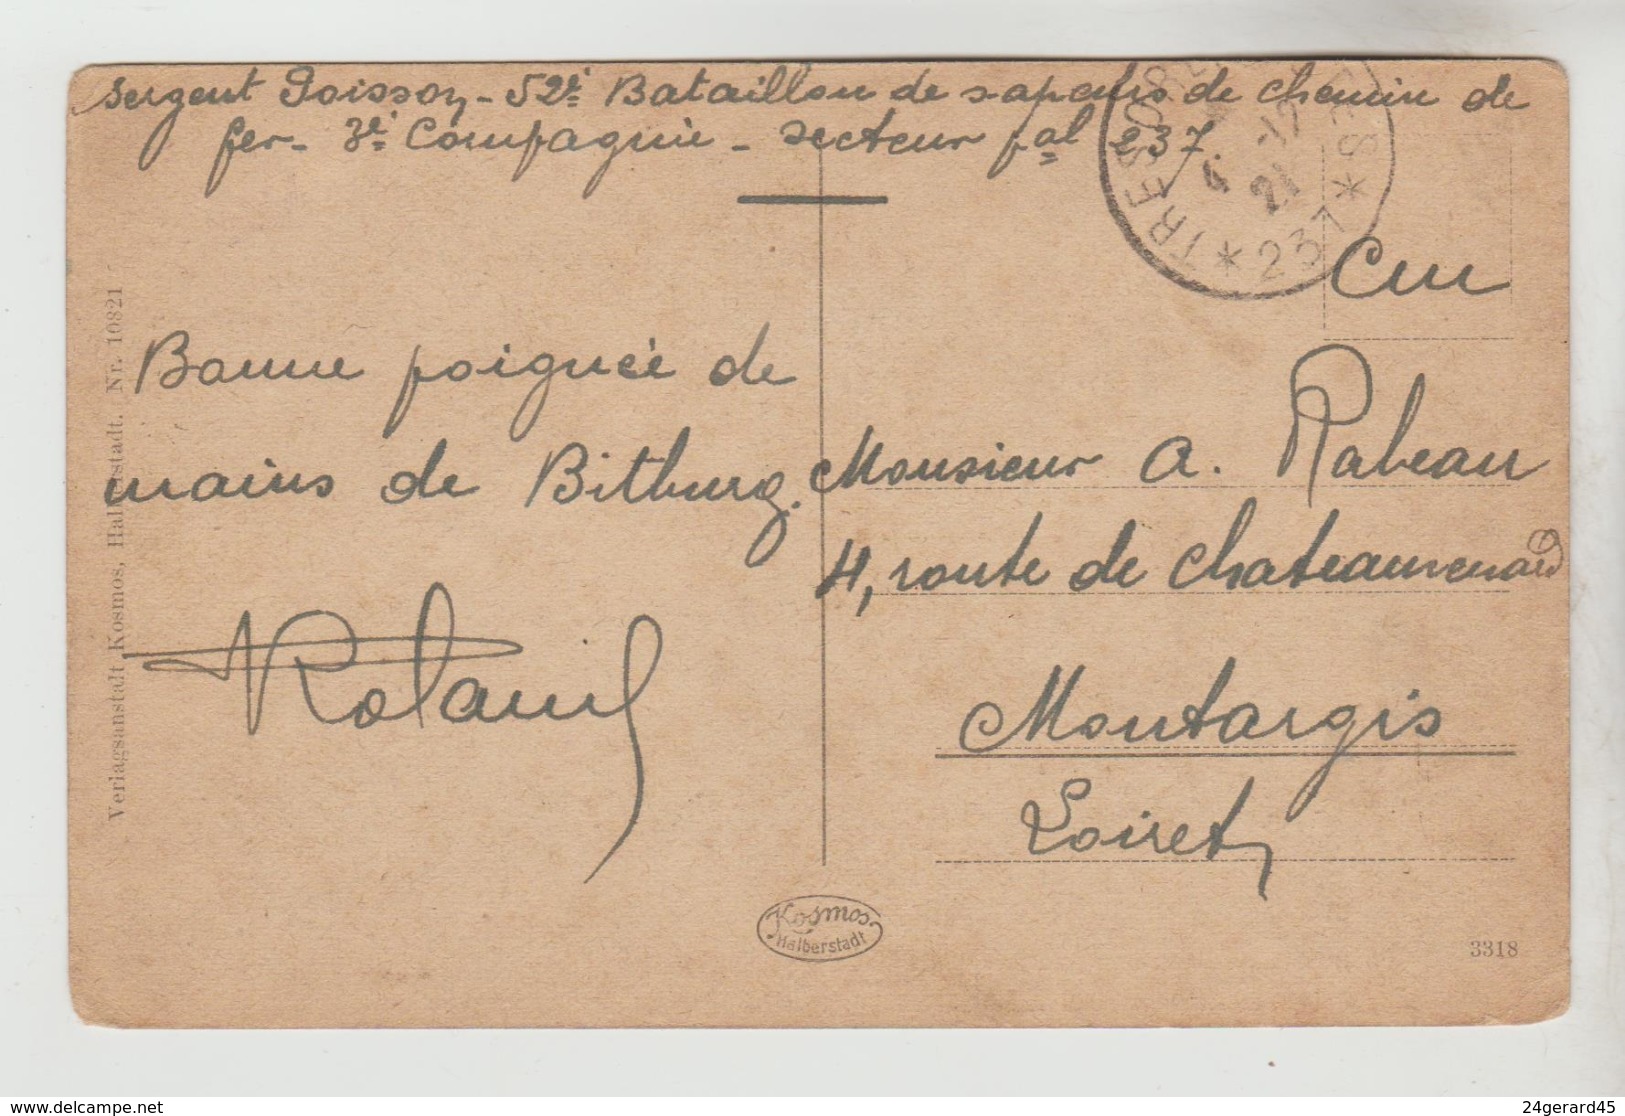 Sergent Poisson - 52e Bataillon de sapeurs de chemin de
fer - 3e Compagnie - secteur pal 237
TRESOR ET POSTES
4 - 12
21
* 237 *
Cm
Bonne poignée de
mains de Bitburg.
Monsieur A. Rabeau
4, route de Chateaurenard
Montargis
Loiret
Verlagsanstalt Kosmos, Halberstadt. Nr. 10821
Kosmos
Halberstadt
3318
delcampe.net
24gerard45